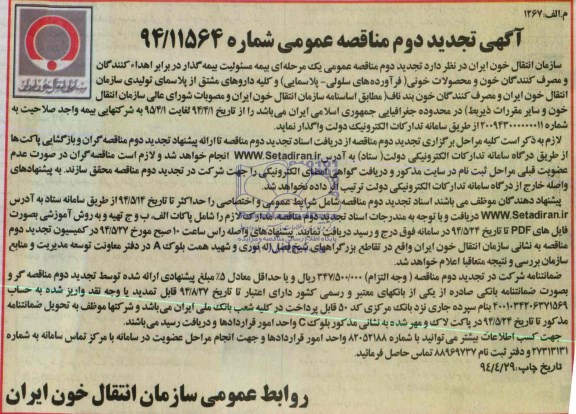 م.الف: ۱۲۶۷
آگهی تجدید دوم مناقصه عمومی شماره ۹۴/۱۱۵۶۴
سازمان انتقال خون ایران در نظر دارد تجدید دوم مناقصه عمومی یک مرحله‌ای بیمه مسئولیت بیمه‌گذار در برابر اهداء کنندگان
و مصرف کنندگان خون و محصولات خونی( فرآورده‌های سلولی- پلاسمایی) و کلیه داروهای مشتق از پلاسمای تولیدی سازمان
انتقال خون ایران و مصرف کنندگان خون بند ناف( مطابق اساسنامه سازمان انتقال خون ایران و مصوبات شورای عالی سازمان انتقال
خون و سایر مقررات ذیربط) در محدوده جغرافیایی جمهوری اسلامی ایران می باشد را از تاریخ ۹۴/۴/۱ لغایت ۹۵/۴/۱ به شرکتهایی بیمه واجد صلاحیت به
شماره ۲۰۰۹۴۳۰۰۰۰۰۰۰۱۱ از طریق سامانه تدارکات الکترونیک دولت واگذار نماید.
لازم به ذکر است کلیه مراحل برگزاری تجدید دوم مناقصه از دریافت اسناد تجدید دوم مناقصه تا ارائه پیشنهاد تجدید دوم مناقصه‌گران و بازگشایی پاکت‌ها
از طریق درگاه سامانه تدارکات الکترونیکی دولت( ستاد) به آدرس www.Setadiran.ir انجام خواهد شد و لازم است مناقصه گران در صورت عدم
عضویت قبلی مراحل ثبت نام در سایت مذکور و دریافت گواهی امضای الکترونیکی را جهت شرکت در تجدید دوم مناقصه محقق سازند. به پیشنهادهای
واصله خارج از درگاه سامانه تدارکات الکترونیکی دولت ترتیب اثر داده نخواهد شد.
پیشنهاد دهندگان موظف می باشند اسناد تجدید دوم مناقصه شامل شرایط عمومی و اختصاصی را حداکثر تا تاریخ ۹۴/۵/۱۴ از طریق سامانه ستاد به آدرس
WWW.Setadiran.ir دریافت و با توجه به مندرجات اسناد تجدید دوم مناقصه مدارک لازم را شامل پاکات الف، ب و ج تهیه و به روش آموزشی بصورت
فایل های PDF تا تاریخ ۹۴/۵/۲۴ در سامانه فوق درج و رسید دریافت نمایند. پیشنهادهای واصله راس ساعت ۱۰ صبح مورخ ۹۴/۵/۲۷ در کمیسیون تجدید دوم
مناقصه به نشانی سازمان انتقال خون ایران واقع در تقاطع بزرگراههای شیخ فضل اله نوری و شهید همت بلوک A در دفتر معاونت توسعه مدیریت و منابع
سازمان بررسی و نتیجه متعاقبا اعلام خواهد شد.
ضمانتنامه شرکت در تجدید دوم مناقصه ( وجه التزام) ۳۴۷/۵۰۰/۰۰۰ ریال و یا حداقل معادل ۵٪ مبلغ پیشنهادی ارائه شده توسط تجدید دوم مناقصه گر و
بصورت ضمانتنامه بانکی صادره از یکی از بانکهای معتبر و رسمی کشور دارای اعتبار تا تاریخ ۹۴/۸/۲۷ قابل تمدید یا وجه نقد واریز شده به حساب
بنام سپرده جاری نزد بانک مرکزی کد ۵۰ قابل پرداخت در کلیه شعب بانک ملی ایران می باشد و شرکتها موظف به تحویل ضمانتنامه
مذکور تا تاریخ ۹۴/۵/۲۴ در پاکت لاک و مهر شده به نشانی مذکور بلوک C واحد امور قراردادها و دریافت رسید می باشند.
جهت کسب اطلاعات بیشتر می توانید با شماره ۸۲۰۵۲۱۸۸ واحد امور قراردادها و جهت انجام مراحل عضویت در سامانه با مرکز تماس سامانه به شماره
۲۷۳۱۳۱۳۱ و دفتر ثبت نام ۸۸۹۶۹۷۳۷ تماس حاصل فرمائید.
تاریخ چاپ: ۹۴/۴/۲۹
روابط عمومی سازمان انتقال خون ایران